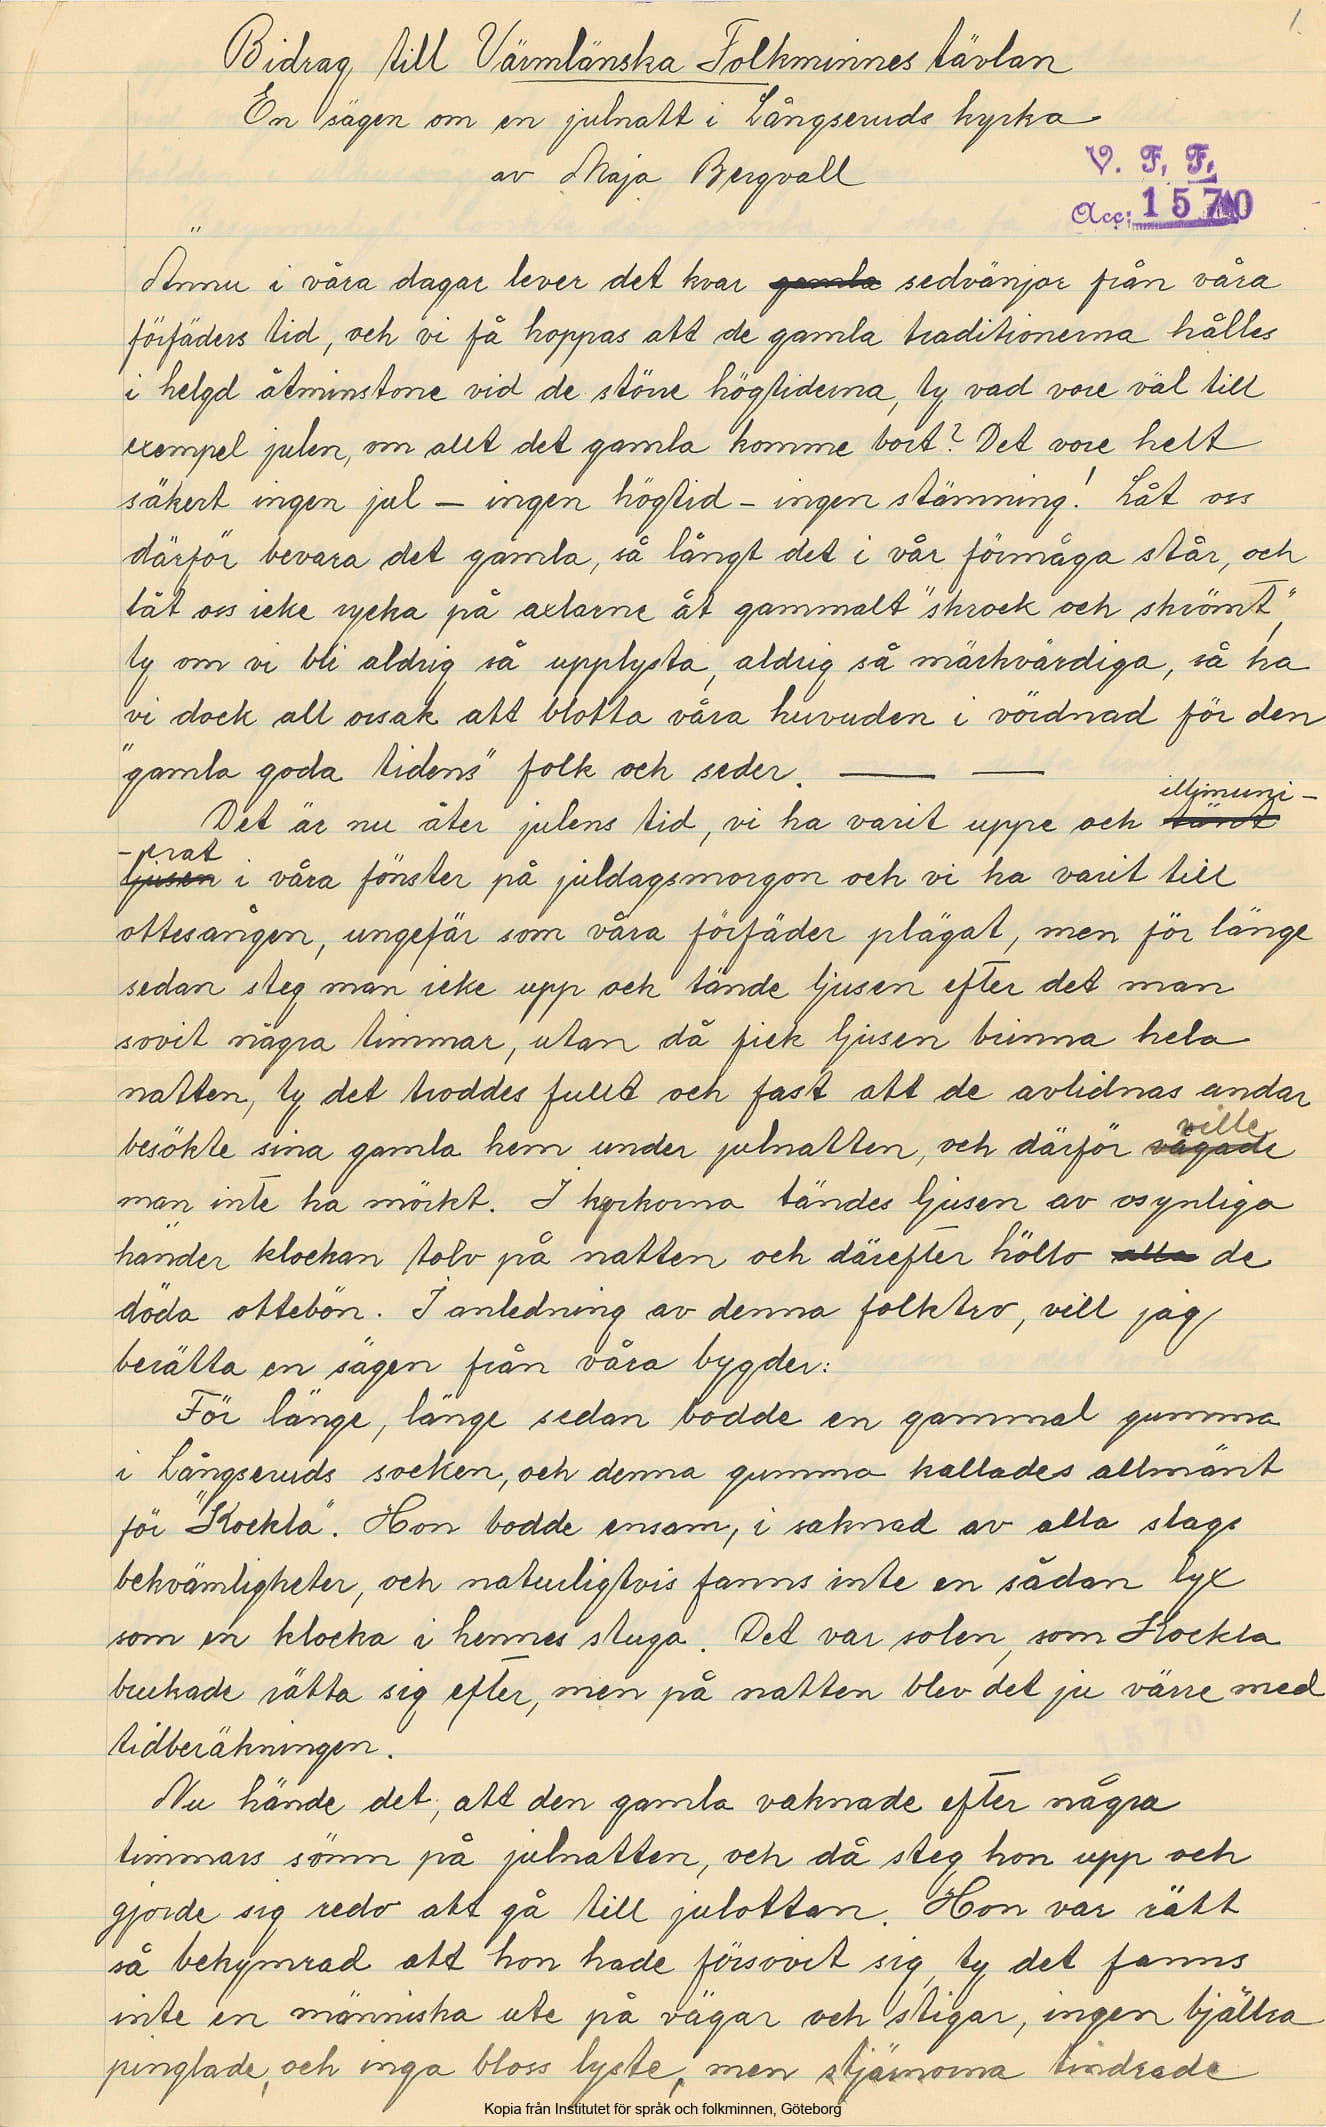 1
Bidrag till Värmlänska Folkminnes tävlan
En sägen om en julnatt i Långseruds kyrka
av Maja Bergvall
V. F. F.
Acc: 1570
Ännu i våra dagar lever det kvar gamla sedvänjor från våra
förfäders tid, och vi få hoppas att de gamla traditionerna hålles
i helgd åtminstone vid de större högtiderna, ty vad vore väl till
exempel julen, om allt det gamla komme bort? Det vore helt
säkert ingen jul — ingen högtid – ingen stämning! Låt oss
därför bevara det gamla, så långt det i vår förmåga står, och
låt oss icke rycka på axlarne åt gammalt "skrock och skrömt",
ty om vi bli aldrig så upplysta, aldrig så märkvärdiga, så ha
vi dock all orsak att blotta våra huvuden i vördnad för den
"gamla goda tidens" folk och seder. — —
illimuni-
Det är nu åter julens tid, vi ha varit uppe och tänt
-erat
ljusen i våra fönster på juldagsmorgon och vi ha varit till
ottesången, ungefär som våra förfäder plägat, men för länge
sedan steg man icke upp och tände ljusen efter det man
sovit några timmar, utan då fick ljusen brinna hela
natten, ty det troddes fullt och fast att de avlidnas andar
ville
besökte sina gamla hem under julnatten, och därför vågade
man inte ha mörkt. I kyrkorna tändes ljusen av osynliga
händer klockan tolv på natten och därefter höllo alla de
döda ottebön. I anledning av denna folktro, vill jag
berätta en sägen från våra bygder:
För länge, länge sedan bodde en gammal gumma
i Långseruds socken, och denna gumma kallades allmänt
för "Kockla". Hon bodde ensam, i saknad av alla slags
bekvämligheter, och naturligtvis fanns inte en sådan lyx
som en klocka i hennes stuga. Det var solen, som Kockla
brukade rätta sig efter, men på natten blev det ju värre med
tidberäkningen.
Nu hände det, att den gamla vaknade efter några
timmars sömn på julnatten, och då steg hon upp och
gjorde sig redo att gå till julottan. Hon var rätt
så bekymrad att hon hade försovit sig, ty det fanns
inte en människa ute på vägar och stigar, ingen bjällra
pinglade, och inga bloss lyste, men stjärnorna tindrade
Kopia från Institutet för språk och folkminnen, Göteborg